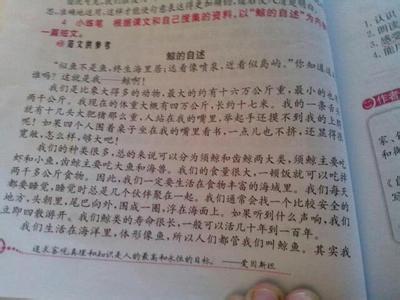 4 小练笔 根据课文和自己搜集的资料,以“鲸的自述”为内容
一篇短文。
范文供参考
鲸的自述
“似鱼不是鱼,终生海里居;远看像喷泉,近看似岛屿。”你知道这
谁吗?这就是我——鲸啊!
我们是比象大得多的动物,最大的约有十六万公斤重,最小的也
两千公斤。我现在的体重大概有四万公斤,长约十七米。我的一条舌
就有十几头大肥猪那么重,人站在我的嘴里,举起手还摸不到我的上
呢!如果四个人围着桌子坐在我的嘴里看书,一点儿也不挤,还显得很
宽敞,怎么样,够大吧!
我们的种类很多,总的来说可以分为须鲸和齿鲸两大类,须鲸主要吃
虾和小鱼;齿鲸主要吃大鱼和海兽。我们的食量很大,一顿饭就可以吃掉
两千多公斤食物。因此,我们一定要生活在食物丰富的海域里。我们每天
都要睡觉,睡觉时总是几个伙伴聚在一起。我们通常会找一个比较安全的
地方,头朝里,尾巴向外,围成一圈,浮在海面上。如果听到什么声响,我们
立即四散游开。我们鲸类的寿命很长,一般可以活几十年到一百年。
我们生活在海洋里,体形像鱼,所以人们都管我们叫鲸鱼。其实我
追求客观真理和知识是人的最高和永恒的目标。——爱因斯坦
1.认识
2.朗读
3.感受
4.能用